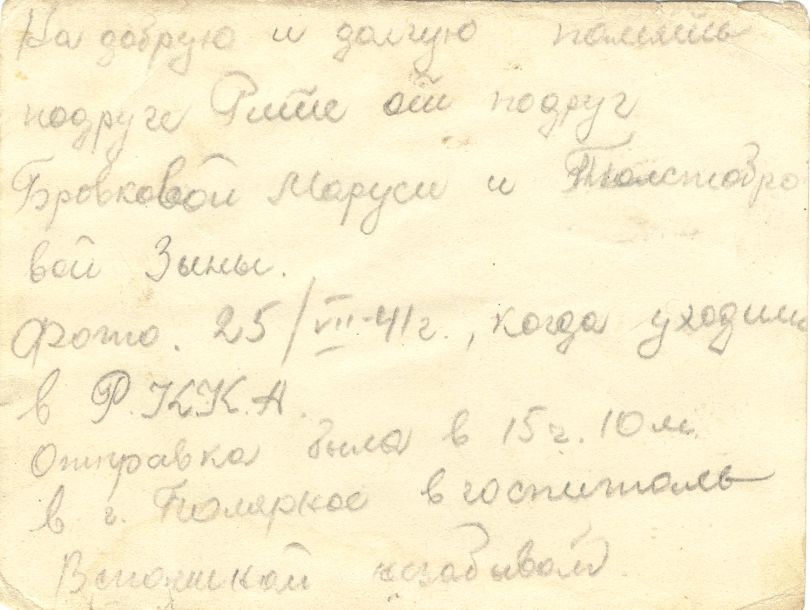 На добрую и долгую память
подруге Рите от подруг
Бровковой Маруси и Толстобро
вой Зыны.
Фото. 25/VII-41г., когда уходили
в Р.К.К.А.
Отправка была в 15ч. 10м.
в г. Полярное в госпиталь
Вспоминай незабывай.